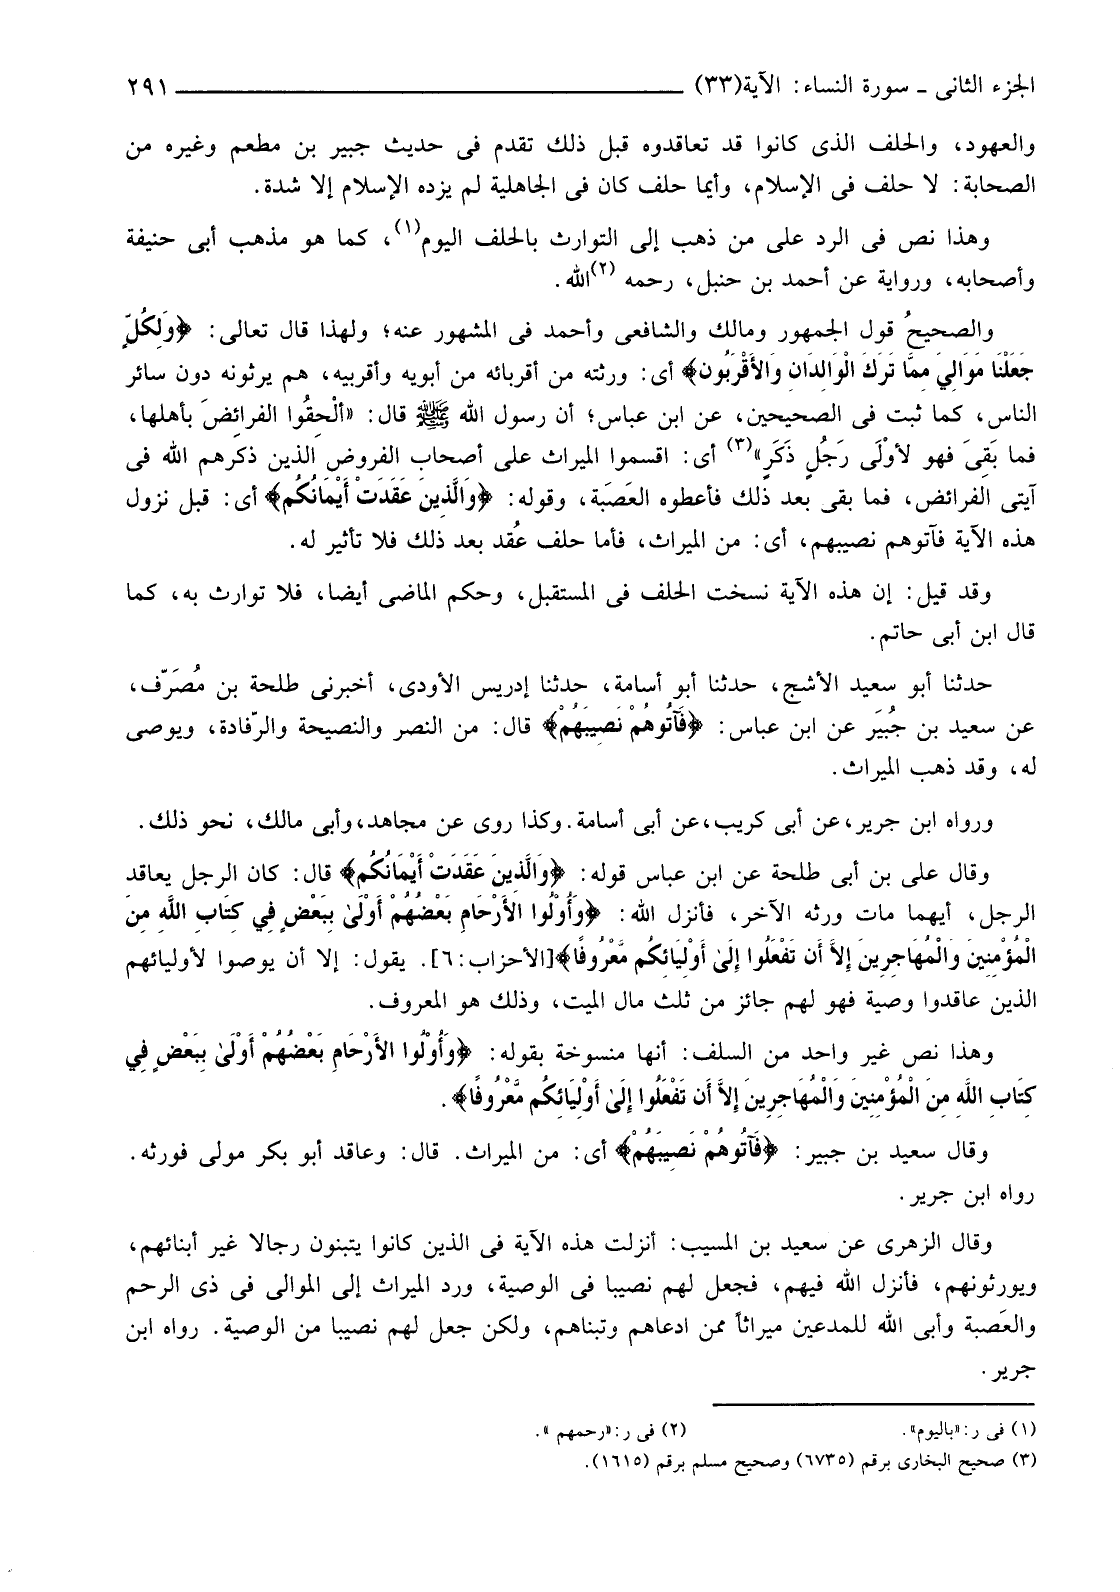 الجزء الثانى ـ سورة النساء: الآية(٣٣) ٢٩١
والعهود، والحلف الذى كانوا قد تعاقدوه قبل ذلك تقدم فى حديث جبير بن مطعم وغيره من
الصحابة: لا حلف فى الإسلام، وأيما حلف كان فى الجاهلية لم يزده الإسلام إلا شدة.
وهذا نص فى الرد على من ذهب إلى التوارث بالحلف اليوم(١)، كما هو مذهب أبى حنيفة
وأصحابه، ورواية عن أحمد بن حنبل، رحمه (٢)الله.
والصحيحُ قول الجمهور ومالك والشافعى وأحمد فى المشهور عنه؛ ولهذا قال تعالى: ﴿وَلِكُلٍّ
جَعَلْنَا مَوَالِيَ مِمَّا تَرَكَ الْوَالِدَانِ وَالأَقْرَبُونَ﴾ أى: ورثته من أقربائه من أبويه وأقربيه، هم يرثونه دون سائر
الناس، كما ثبت فى الصحيحين، عن ابن عباس؛ أن رسول الله ﷺ قال: «ألْحِقُوا الفرائضَ بأهلها،
فما بَقِىَ فهو لأوْلَى رَجُلٍ ذَكَرٍ»(٣) أى: اقسموا الميراث على أصحاب الفروض الذين ذكرهم الله فى
آيتى الفرائض، فما بقى بعد ذلك فأعطوه العَصَبَة، وقوله: ﴿وَالَّذِينَ عَقَدَتْ أَيْمَانُكُمْ﴾ أى: قبل نزول
هذه الآية فآتوهم نصيبهم، أى: من الميراث، فأما حلف عُقد بعد ذلك فلا تأثير له.
وقد قيل: إن هذه الآية نسخت الحلف فى المستقبل، وحكم الماضى أيضا، فلا توارث به، كما
قال ابن أبى حاتم.
حدثنا أبو سعيد الأشج، حدثنا أبو أسامة، حدثنا إدريس الأودى، أخبرنى طلحة بن مُصَرّف،
عن سعيد بن جُبَيَر عن ابن عباس: ﴿فَآتُوهُمْ نَصِيبَهُمْ﴾ قال: من النصر والنصيحة والرّفادة، ويوصى
له، وقد ذهب الميراث.
ورواه ابن جرير،عن أبى كريب،عن أبى أسامة.وكذا روى عن مجاهد،وأبى مالك، نحو ذلك.
وقال على بن أبى طلحة عن ابن عباس قوله: ﴿وَالَّذِينَ عَقَدَتْ أَيْمَانُكُمْ﴾ قال: كان الرجل يعاقد
الرجل، أيهما مات ورثه الآخر، فأنزل الله: ﴿وَأُوْلُوا الأَرْحَامِ بَعْضُهُمْ أَوْلَىٰ بِبَعْضٍ فِي كِتَابِ اللَّهِ مِنَ
الْمُؤْمِنِينَ وَالْمُهَاجِرِينَ إِلاَّ أَن تَفْعَلُوا إِلَىٰ أَوْلِيَائِكُم مَّعْرُوفًا﴾[الأحزاب:٦]. يقول: إلا أن يوصوا لأوليائهم
الذين عاقدوا وصية فهو لهم جائز من ثلث مال الميت، وذلك هو المعروف.
وهذا نص غير واحد من السلف: أنها منسوخة بقوله: ﴿وَأُوْلُوا الأَرْحَامِ بَعْضُهُمْ أَوْلَىٰ بِبَعْضٍ فِي
كِتَابِ اللَّهِ مِنَ الْمُؤْمِنِينَ وَالْمُهَاجِرِينَ إِلاَّ أَن تَفْعَلُوا إِلَىٰ أَوْلِيَائِكُم مَّعْرُوفًا﴾.
وقال سعيد بن جبير: ﴿فَآتُوهُمْ نَصِيبَهُمْ﴾ أى: من الميراث. قال: وعاقد أبو بكر مولى فورثه.
رواه ابن جرير.
وقال الزهرى عن سعيد بن المسيب: أنزلت هذه الآية فى الذين كانوا يتبنون رجالا غير أبنائهم،
ويورثونهم، فأنزل الله فيهم، فجعل لهم نصيبا فى الوصية، ورد الميراث إلى الموالى فى ذى الرحم
والعَصبة وأبى الله للمدعين ميراثاً ممن ادعاهم وتبناهم، ولكن جعل لهم نصيبا من الوصية. رواه ابن
جرير.
(١) فى ر:«باليوم». (٢) فى ر:«رحمهم».
(٣) صحيح البخارى برقم (٦٧٣٥) وصحيح مسلم برقم (١٦١٥).